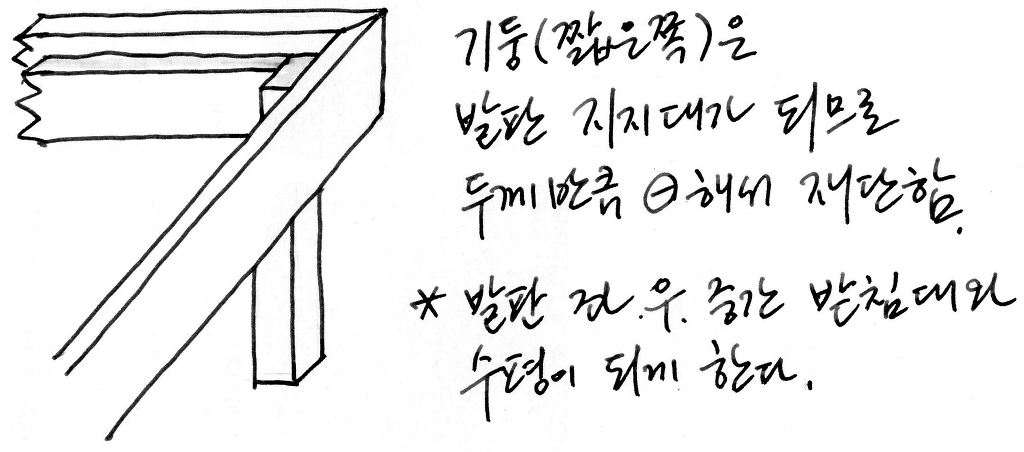 기둥(짧은쪽)은
발판 지지대가 되므로
두께만큼 ⊖해서 재단함.
* 발판 좌.우. 중간 받침대와
수평이 되게 한다.